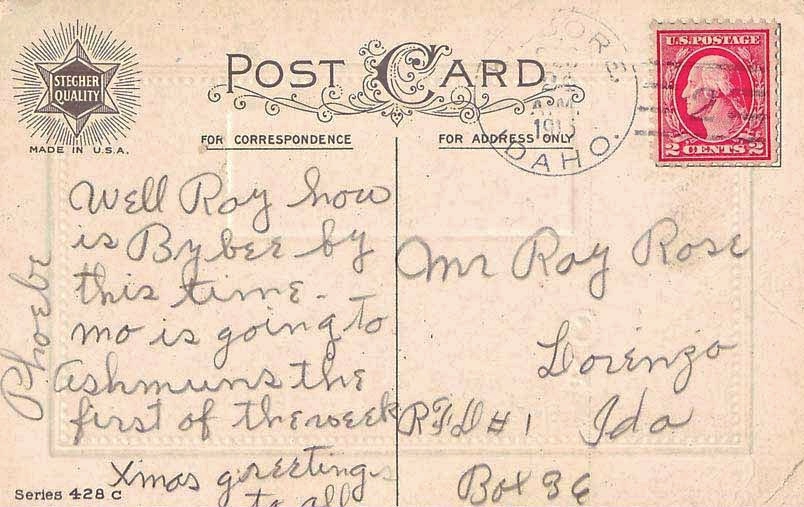 STECHER
QUALITY
MADE IN U.S.A.
POST CARD
FOR CORRESPONDENCE
FOR ADDRESS ONLY
A.M.
IDAHO.
U.S. POSTAGE
2 CENTS 2
Well Ray how
is Bybee by
this time.
mo is going to
Ashmuns the
first of the week
Xmas greetings
to all
Phoebe
Mr Ray Rose
Lorenzo
RFD # 1 Ida
Box 36
Series 428 C